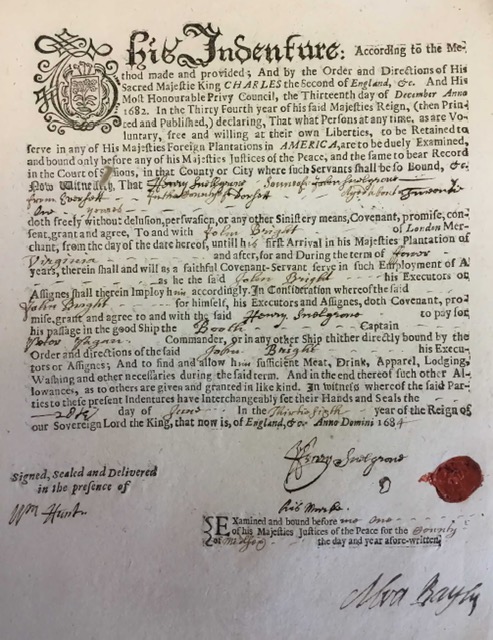 This Indenture: According to the Me-
thod made and provided; And by the Order and Directions of His
Sacred Majestie King CHARLES the Second of England, &c. And His
Most Honourable Privy Council, the Thirteenth day of December Anno
1682. In the Thirty Fourth year of his said Majesties Reign, (then Prin-
ted and Published,) declaring, That what Persons at any time, as are Vo-
luntary, free and willing at their own Liberties, to be Retained to
serve in any of His Majesties Foreign Plantations in AMERICA, are to be duely Examined,
and bound only before any of his Majesties Justices of the Peace, and the same to bear Record
in the Court of Sessions, in the County or City where such Servants shall be so Bound, &c.
Now Witnesseth, That Henry Snelgrove sonne of John Snelgrove
from Evershott in the County of Dorsett Aged about Twentie
One yeares
doth freely without delusion, perswasion, or any other Sinistery means, Covenant, promise, con-
sent, grant and agree, To and with John Bright of London Mer-
chant, from the date hereof, untill his first Arrival in his Majesties Plantation of
Virginia and after, for and During the term of fower
years, therein shall and will as a faithful Covenant-Servant serve in such Employment of A
as he the said John Bright his Executors or
Assignes shall therein Imploy him accordingly. In Consideration whereof the said
John Bright for himself, his Executors and Assignes, doth Covenant, pro-
mise, grant and agree to and with the said Henry Snelgrove to pay for
his passage in the good Ship the Booth Captain
Peter Pagan Commander, or in any other Ship thither directly bound by the
Order and directions of the said John Bright his Execu-
tors or Assignes; And to find and allow him sufficient Meat, Drink, Apparel, Lodging,
Washing and other necessaries during the said term. And in the end thereof such other Al-
lowances, as to others are given and granted in like kind. In witness whereof the said Par-
ties to these present Indentures have Interchangeably set their Hands and Seals the
day of June In the Thirtie Sixth year of the Reign of
our Sovereign Lord the King, that now is, of England, &c. Anno Domini 1684
Henry Snelgrove
Signed, Sealed and Delivered
in the presence of
Wm Hunt
his Marke
Examined and bound before me one
of his Majesties Justices of the Peace for the County
of the day and year afore-written